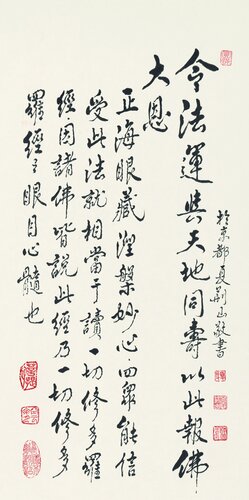 令法運與天地同壽以此報佛
大恩
正海眼藏涅槃妙心四眾能信
受此法就相當于讀一切修多羅
經因諸佛皆說此經乃一切修多
羅經之眼目心髓也
於京都夏荊山敬書